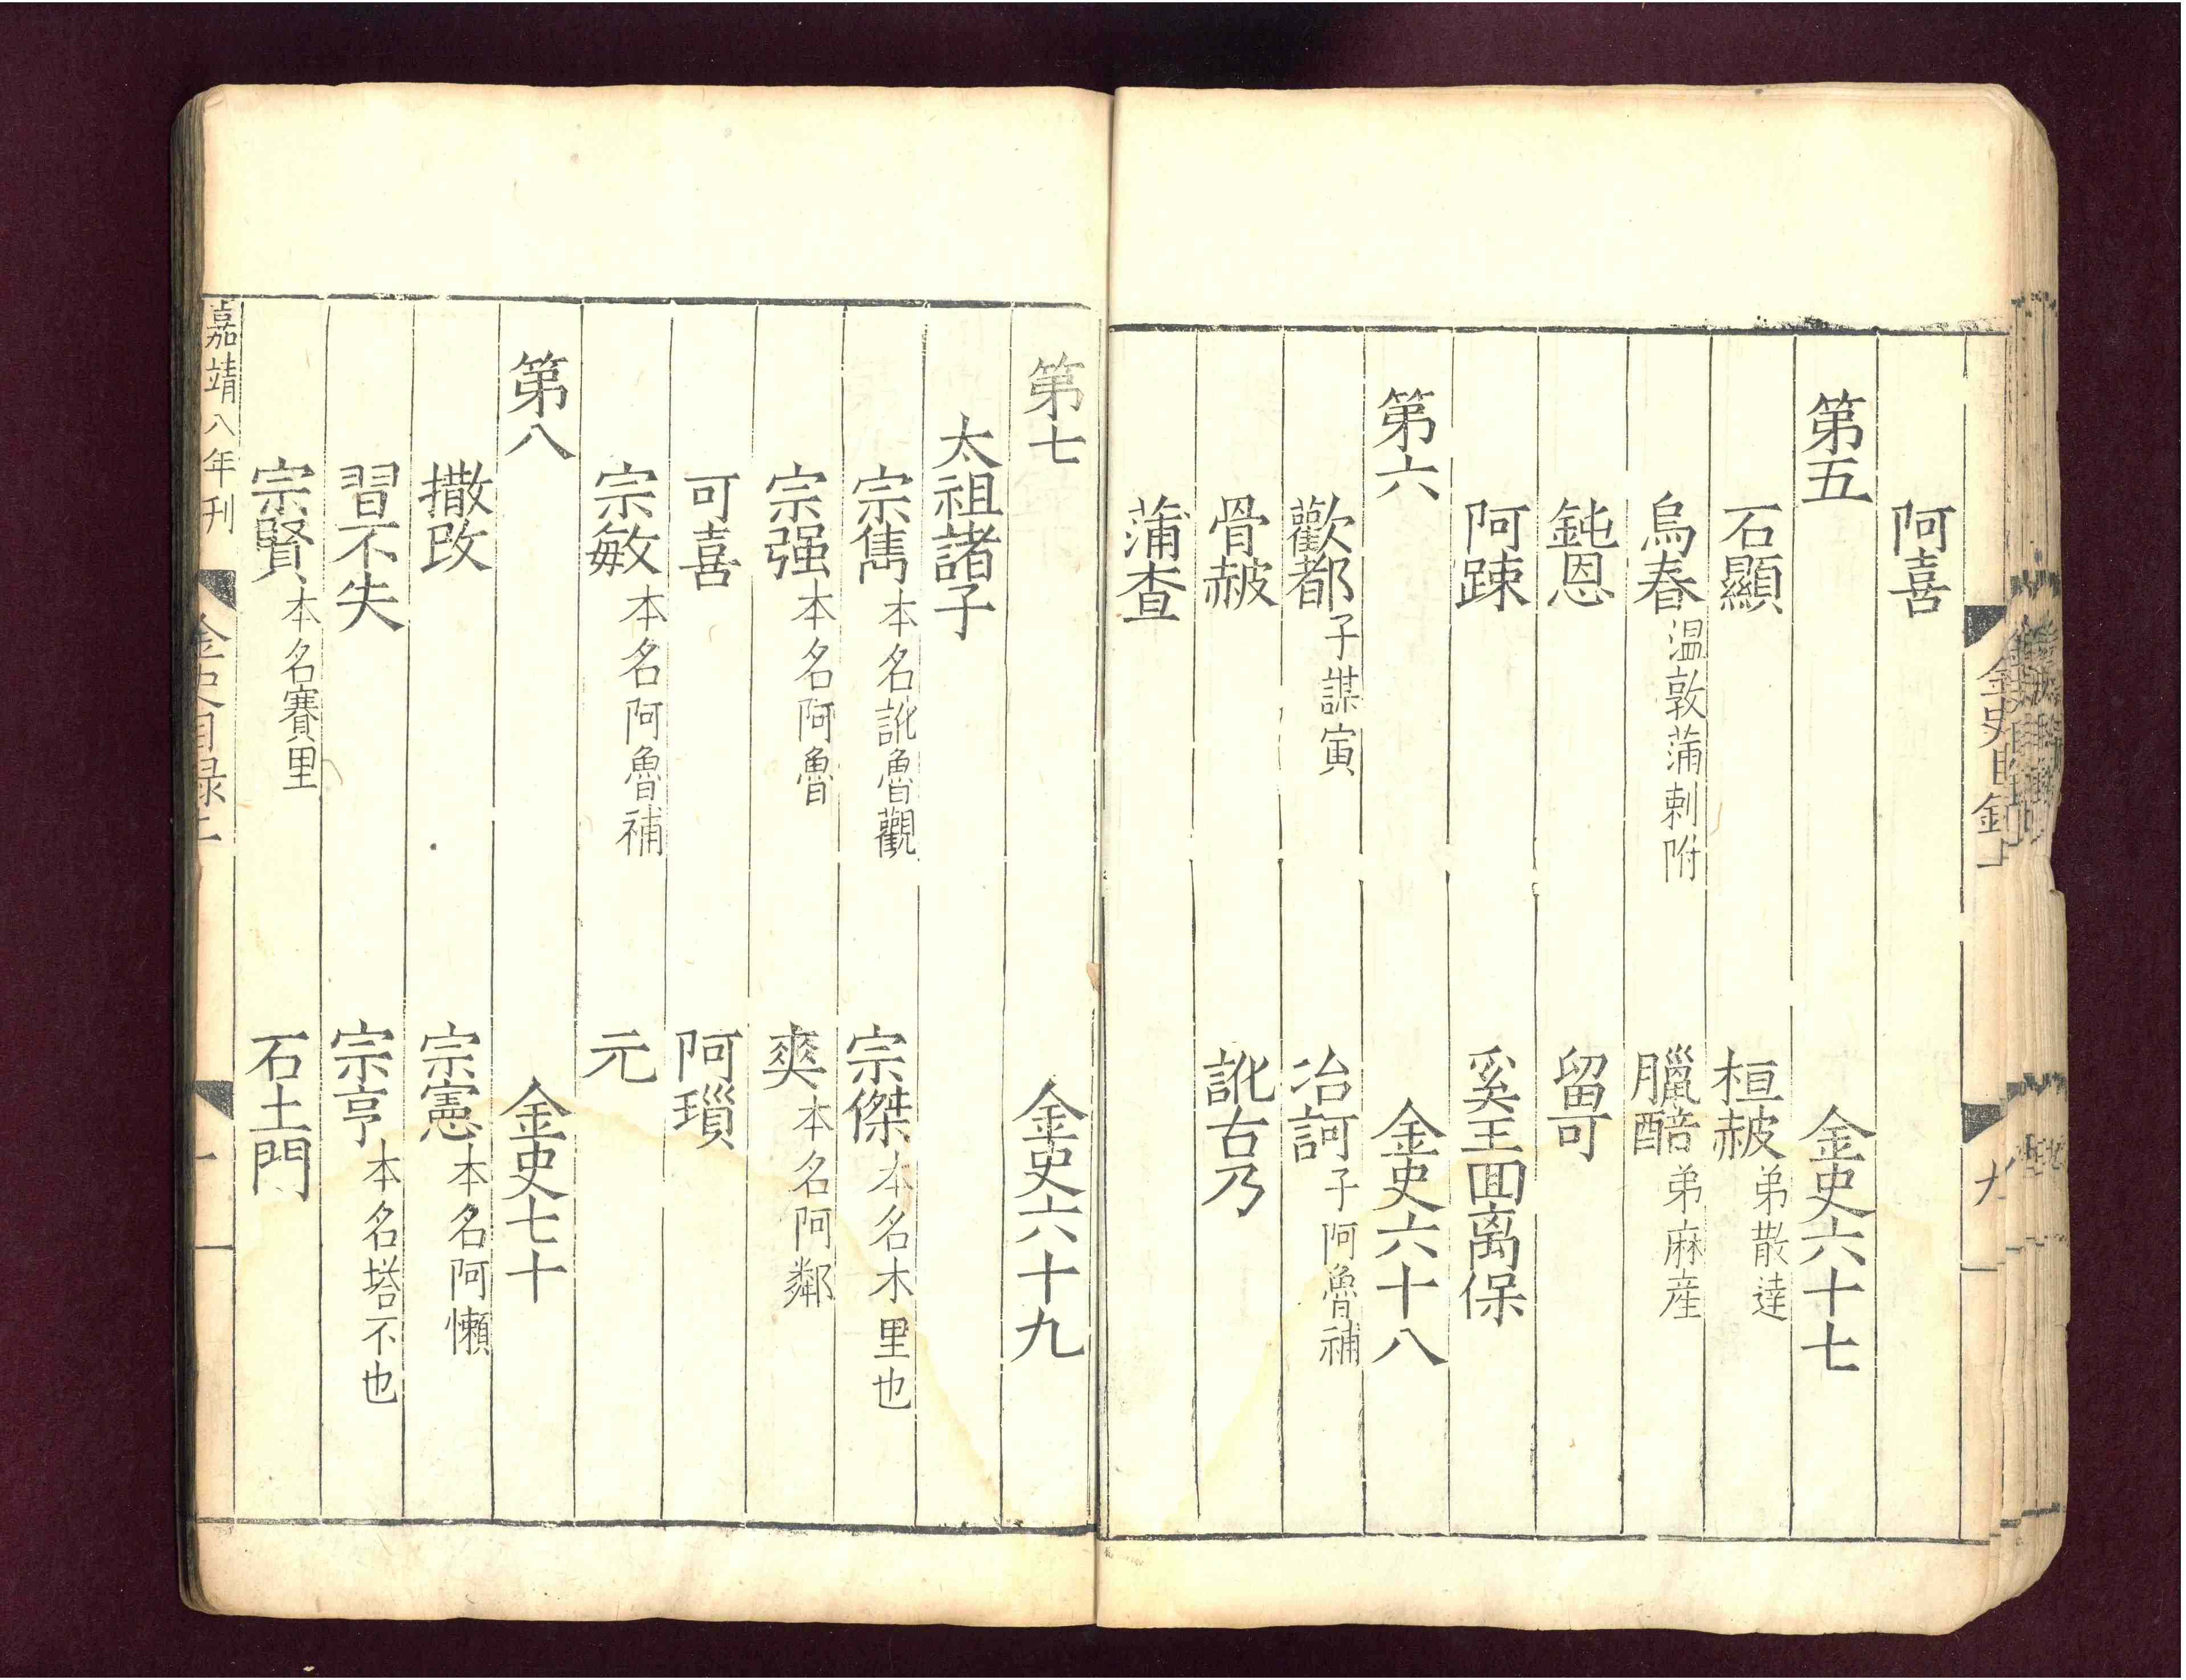 金史目錄上
九
阿喜
第五　金史六十七
石顯　桓赧弟散達
烏春温敦蒲剌附　臘醅弟麻産
鈍恩　留可
阿踈　奚王回离保
第六　金史六十八
歡都子謀演　冶訶子阿魯補
骨赧　訛古乃
蒲查
第七　金史六十九
太祖諸子
宗雋本名訛魯觀　宗傑本名木里也
宗强本名阿魯　爽本名阿鄰
可喜　阿瑣
宗敏本名阿魯補　元
第八　金史七十
撒改　宗憲本名阿懶
習不失　宗亨本名塔不也
宗賢本名賽里　石土門
嘉靖八年刊　金史目録上